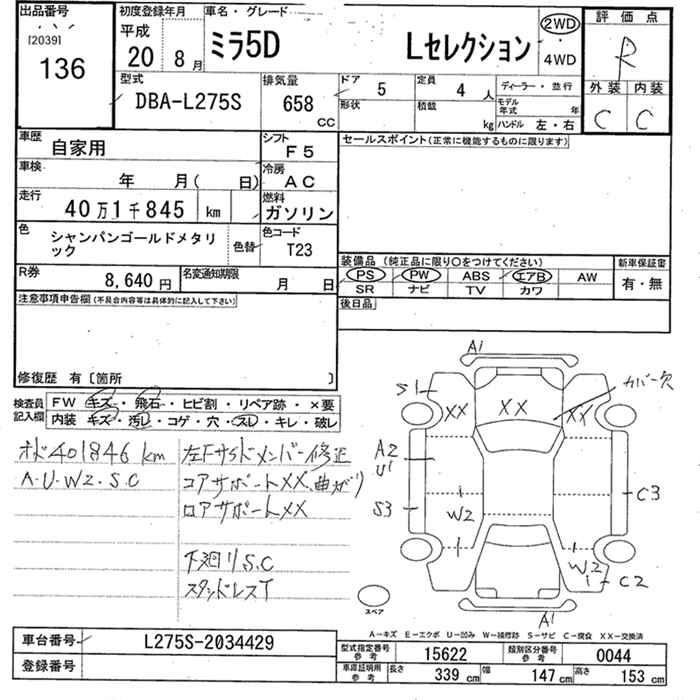 出品番号
[2039]
136
初度登録年月
平成
20年 8月
車名・グレード
ミラ5D Lセレクション
2WD
4WD
評価点
R
外装 内装
C C
型式
DBA-L275S
排気量
658
CC
ドア 5
形状
定員 4 人
積載 kg
ディーラー・並行
モデル年式 年
ハンドル 左・右
車歴 自家用
シフト F5
車検 年 月( 日)
冷房 AC
走行 40万1千845 km
燃料 ガソリン
色 シャンパンゴールドメタリック
色替
色コード T23
R券 8,640円
名変通知期限 月 日
セールスポイント(正常に機能するものに限ります)
装備品(純正品に限り○をつけてください)
PS PW ABS エアB AW
SR ナビ TV カワ
新車保証書
有・無
後日品
注意事項申告欄(不具合内容等は具体的に記入して下さい)
修復歴 有〔箇所 〕
検査員記入欄
FW キズ・飛石・ヒビ割・リペア跡・×要
内装 キズ・汚レ・コゲ・穴・スレ・キレ・破レ
オド401846km
A・U・W2・S・C
左Fサイドメンバー修正
コアサポートXX、曲がり
ロアサポートXX
下廻りS.C
スタッドレスT
A1
S1
XX
XX
XX
カバー欠
A2
U1
S3
W2
C3
W2
C2
A1
スペア
A-キズ E-エクボ U-凹み W-補修跡 S-サビ C-腐食 XX-交換済
車台番号 L275S-2034429
登録番号
型式指定番号 参考 15622
類別区分番号 参考 0044
車庫証明用 参考 長さ 339cm 幅 147cm 高さ 153cm